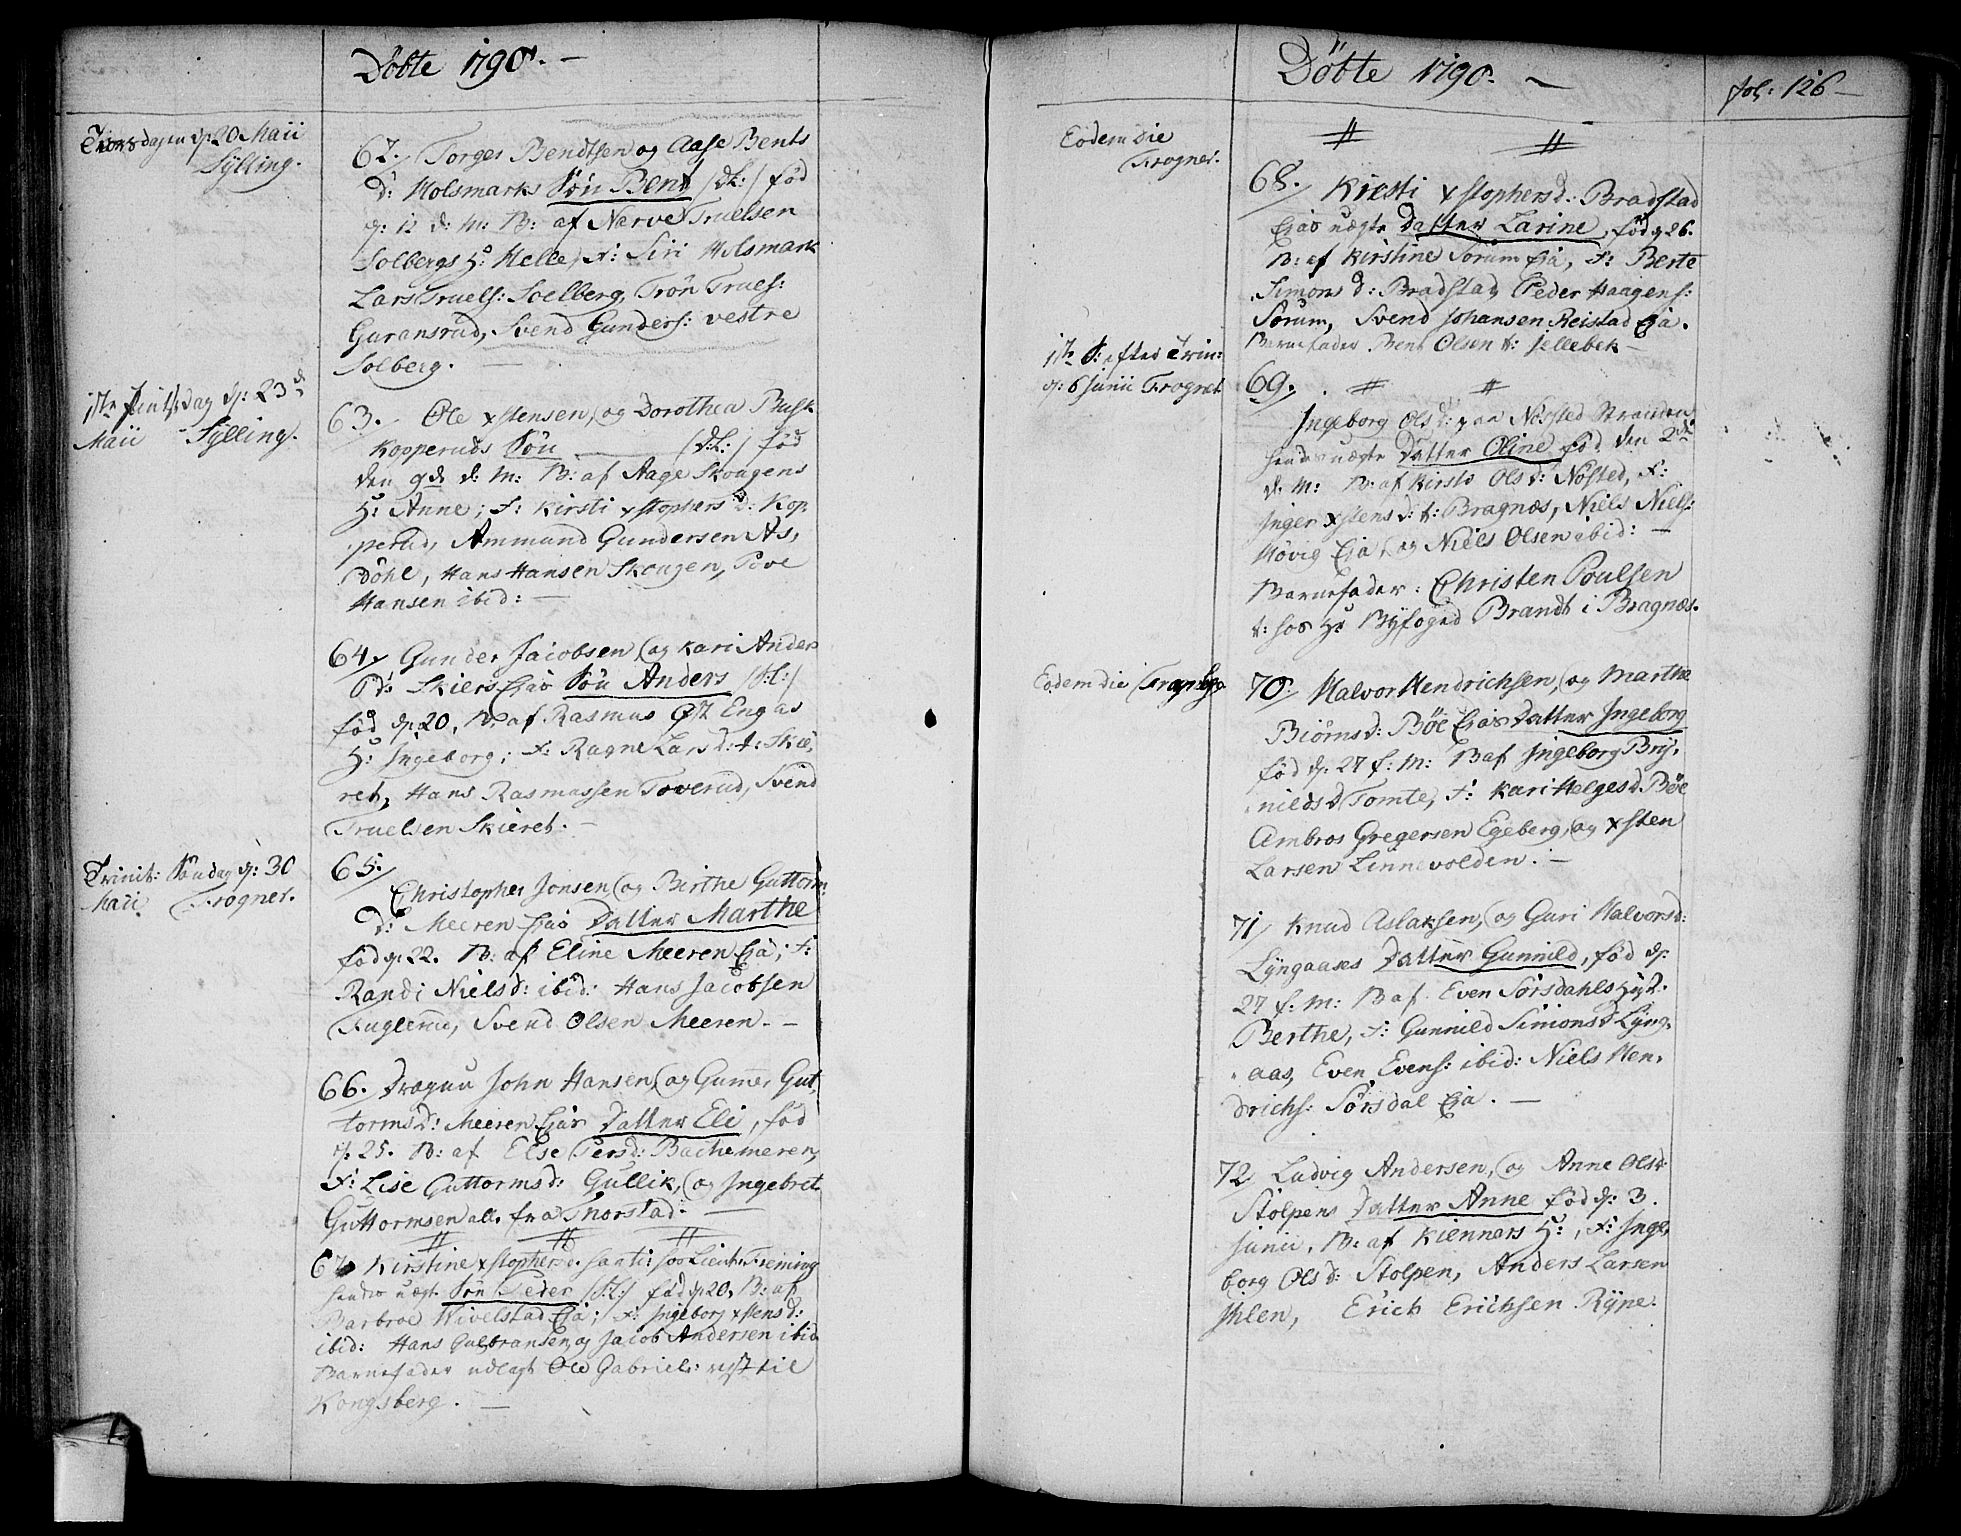 Döbte 1790. —
Torsdagen d: 20 Maii
Sylling.
62. Torges Bendtsen og Aase Bents
d: Holsmarks Sön Bent (dL:) föd
d: 12 d: M: B: af Narve Truelsen
Solbergs H: Helle, F: Siri Holsmark
Lars Truels: Soelberg, Tron Truels:
Guransrud, Svend Gunders: vestre
Solberg. —
1ste Pintsdag d: 23d
Maii Sylling.
63. Ole xstensen, og Dorothea Busk
Kopperuds Sön (dL:) föd
den 9de d: M: B: af Aage Skougens
H: Anne; F: Kirsti xstophersd: Kop,
perud, Ammund Gundersen As,
Döhl, Hans Hansen Skougen, Pove
Hansen ibid: —
64. Gunder Jacobsen, og Kari Anders
d: Skiers Eja Sön Anders
föd d: 20. B: af Rasmus Øst Engas
H: Ingeborg; F: Ragne Larsd: t: Skie,
ret, Hans Rasmussen Toverud, Svend
Truelsen Skieret. —
Trinit: Söndag d: 30
Maii Frogner.
65. Christopher Jonsen, og Birthe Guttorm
d: Meeren Ejas Datter Marthe
föd d: 22. B: af Eline Meeren Eja; F:
Randi Nielsd: ibid: Hans Jacobsen
Fuglerud, Svend Olsen Meeren. —
66. Dragun John Hansen, og Gunner Gut,
tormsd: Meeren Ejas Datter Eli, föd
d: 25. B: af Else Persd: Bachemeren,
F: Lise Guttormsd: Gullik, og Ingebret
Guttormsen alle fra Thorstad. —
67. Kirstine xstophersd: hos Lieut: Freming
hendes uægt: Sön Peder föd d: 20. B: af
Barbroe Wivelstad Eja; F: Ingeborg xstensd:
ibid: Hans Gulbransen, og Jacob Andersen ibid
Barnefader udlagt Ole Gabriels: reyst til
Kongsberg. —
Döbte 1790. —
fol: 126 —
Eodem Die
Frogner.
68. Kirsti xstophersd: Bradstad
Ejas uægte Datter Larine, föd d: 26.
B: af Kirstine Sorum Eja, F: Berte
Simonsd: Bradstad, Peder Haagens:
Sorum, Svend Johansen Reistad Eja.
Barnefader Bent Olsen t: Jellebek —
1ste S: efter Trin:
d: 6 Junii Frogner
69.
Ingeborg Olsd: paa Nösted Stranden
hendes uægte Datter Oline föd den 2de
d: M: B: af Kirsti Olsd: Nösted, F:
Inger xstensd: t: Bragnæs, Niels Niels:
Hövig Eja, og Niels Olsen ibid: —
Barnefader: Christen Poulsen
t: hos Hr Byfoged Brandt i Bragnæs.
Eodem die Frogner
70. Halvor Hendrichsen, og Marthe
Biörnsd: Böe Ejas Datter Ingeborg
föd d: 27 f: M: B af Ingeborg Bry,
nildsd Tomte, F: Kari Helgesd Böe
Ambros Gregersen Egeberg, og xsten
Larsen Linnevolden. —
71. Knud Aslaksen, og Guri Halvorsd:
Lyngaases Datter Gunnild, föd d:
27 f: M: B af Even Sörsdahls
Berthe, F: Gunnild Simonsd Lyng,
aas, Even Evens: ibid: Niels Hen,
drichs: Sörsdal Eja. —
72. Ludvig Andersen, og Anne Olsd:
Stolpens Datter Anne föd d: 3.
Junii. B: af Kienners H:, F: Inge,
borg Olsd: Stolpen, Anders Larsen
Ihlen, Erich Erichsen Rÿpe.